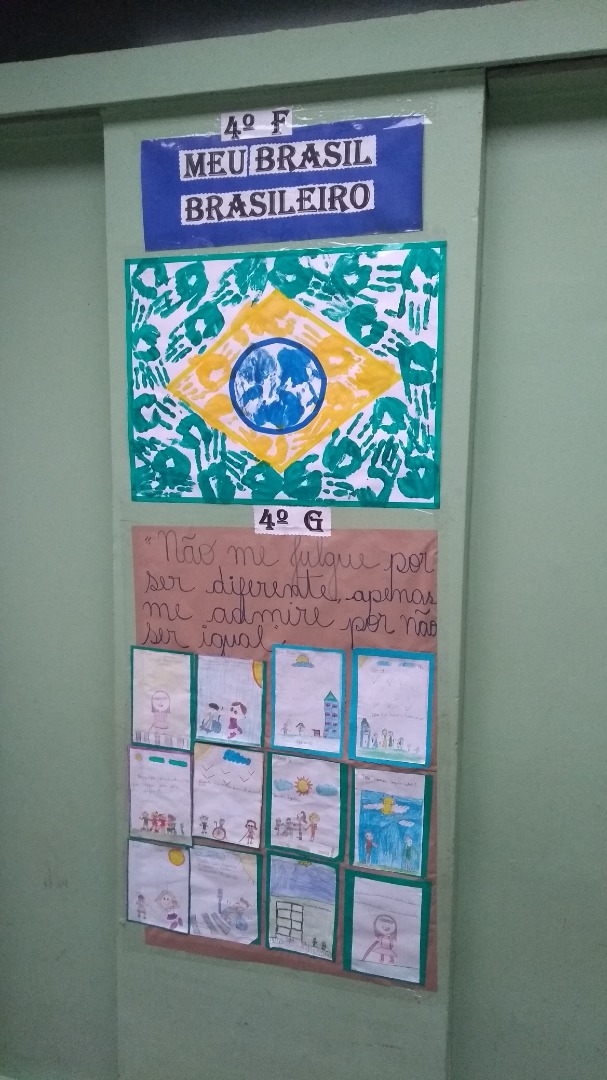 4º F
MEU BRASIL
BRASILEIRO
4º G
"Não me julgue por
ser diferente, apenas
me admire por não
ser igual".